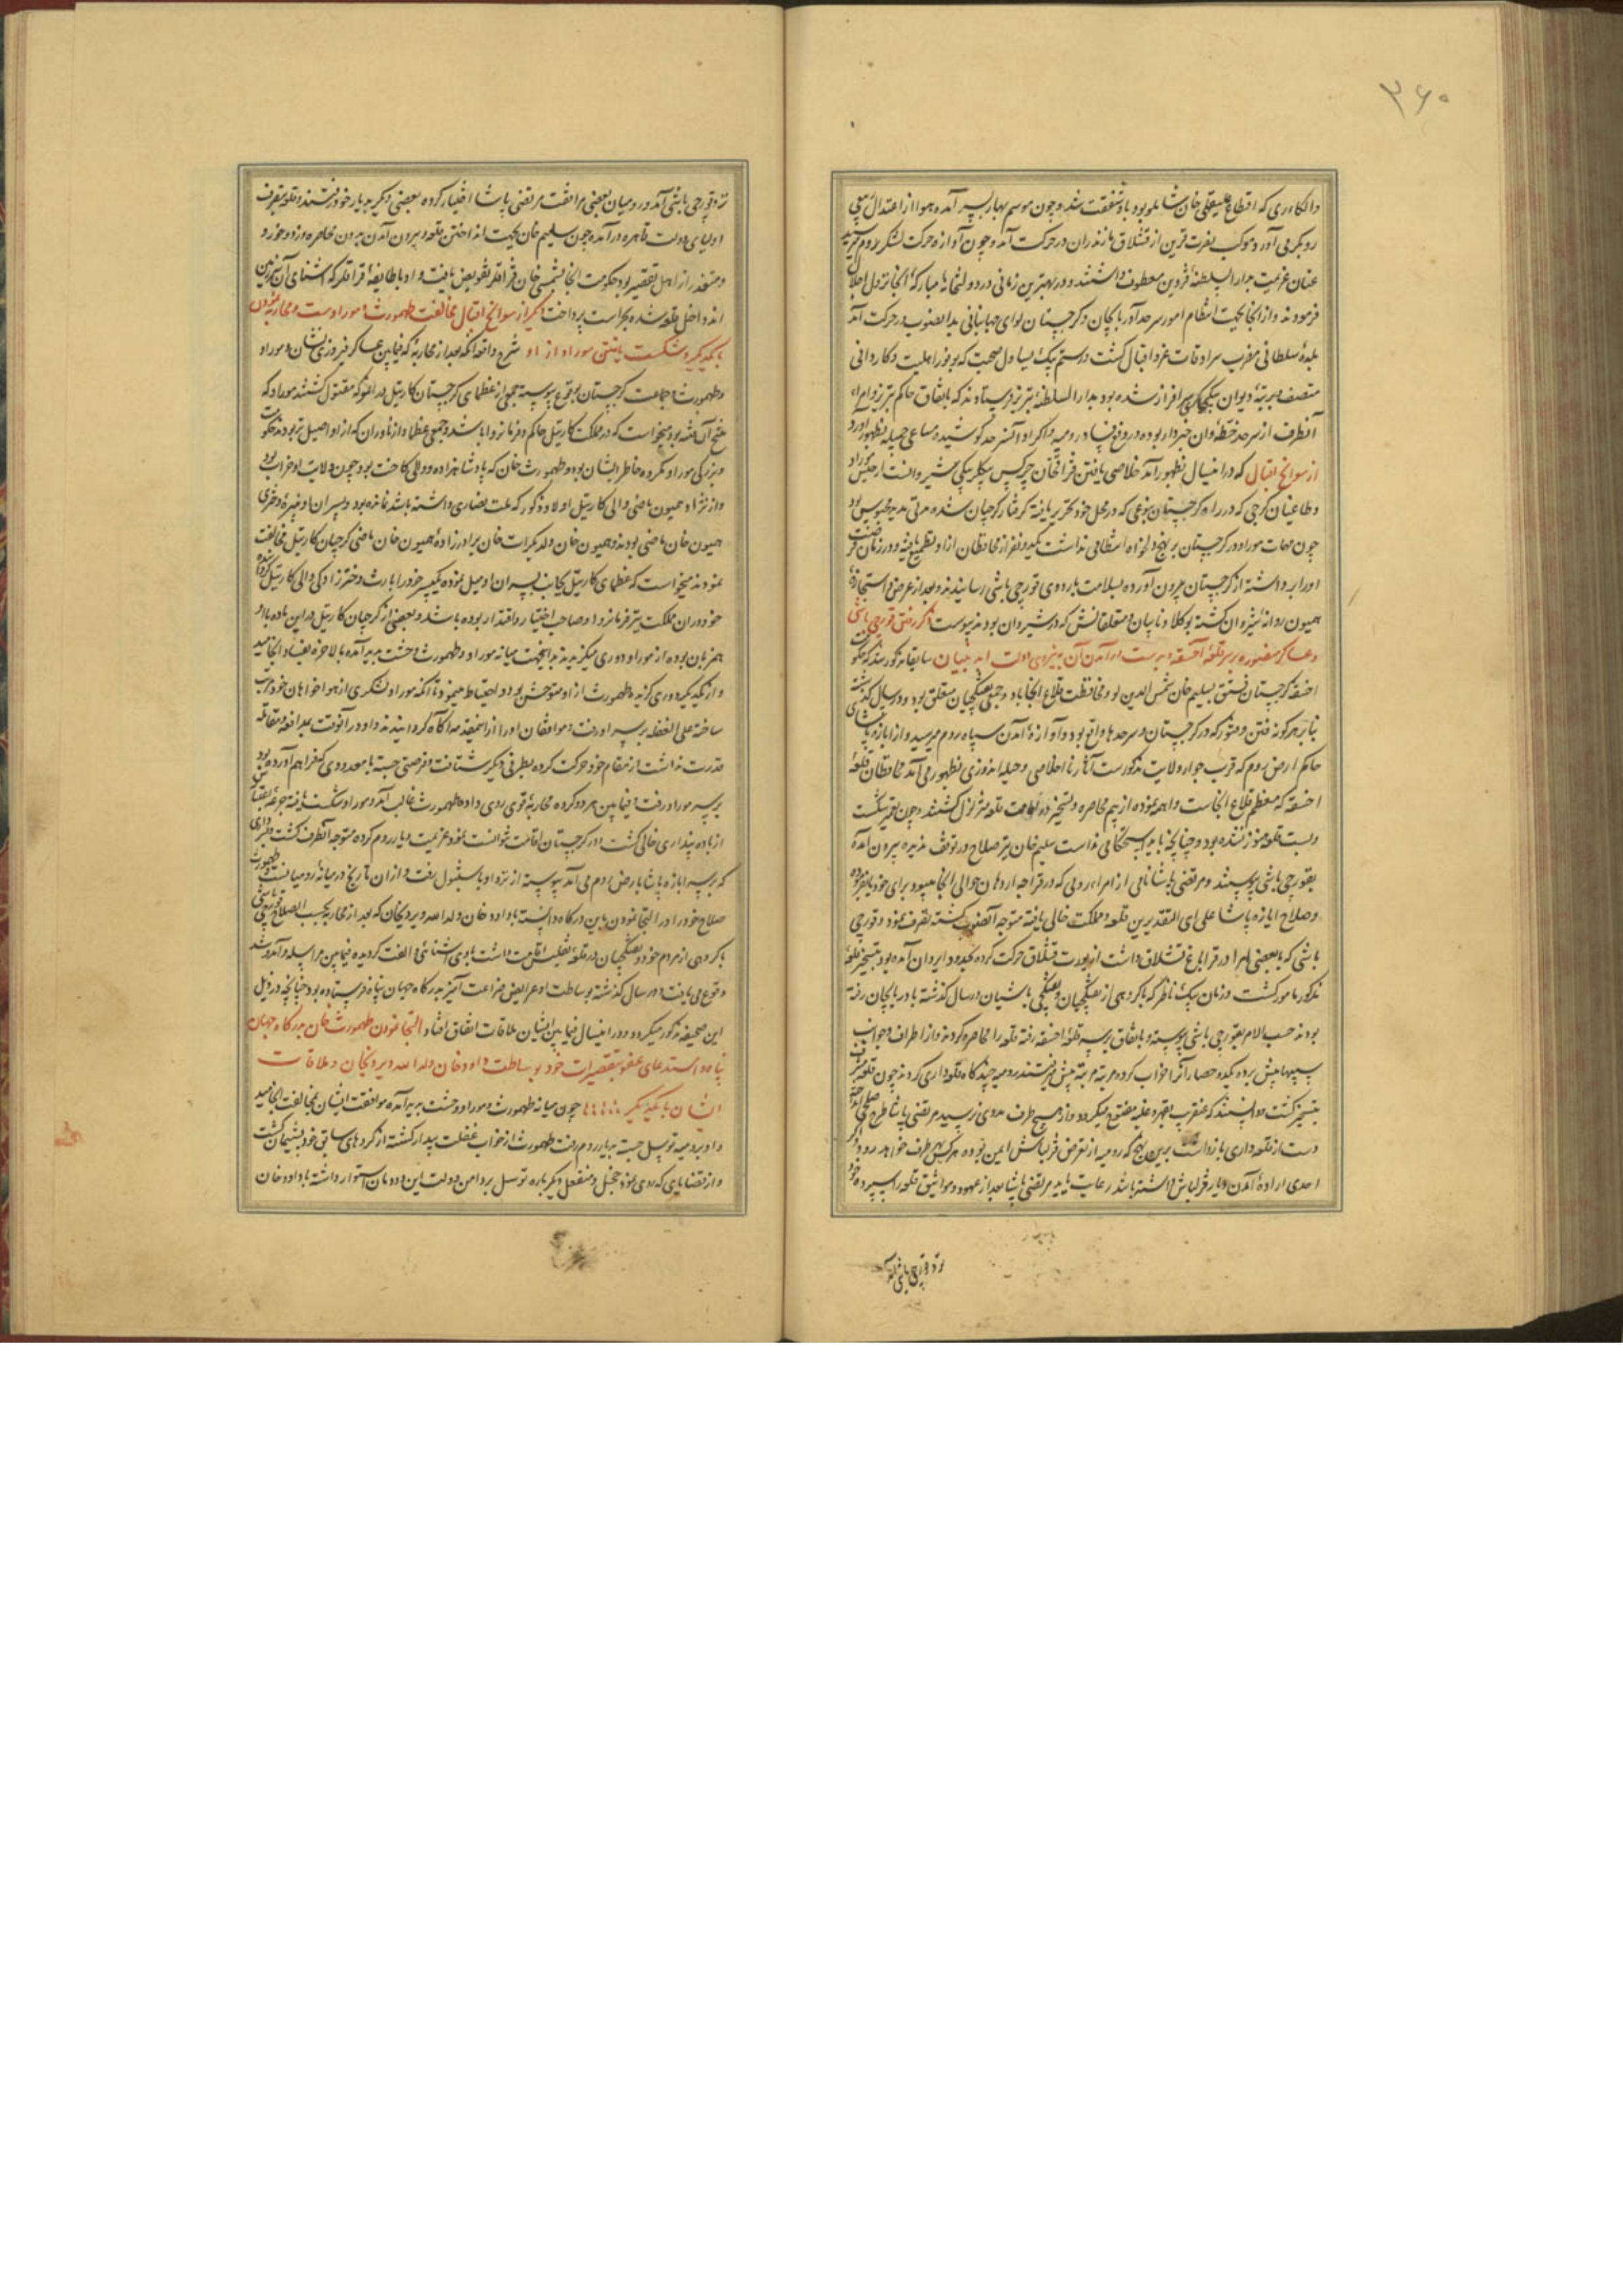 ۳۶۰
والکاءی که اقطاع علیقلی خان شاملو بود باو شفقت شد و چون موسم بهار بسر آمده هوا از اعتدال
روبگرمی آورد موکب نصرت قرین از قشلاق مازندران در حرکت آمد و چون آوازه حرکت لشکر روم
عنان عزیمت بدار السلطنه قزوین معطوف داشتند و در بهترین زمانی در دولتخانه مبارکه آنجا نزول اجلال
فرمودند و از آنجا بجهت انتظام امور سرحد آذربایجان و گرجستان لوای جهانبانی بدانصوب در حرکت آمد
بلده سلطانی مضرب سرادقات عز و اقبال گشت رستم بیک یساول صحبت که بوفور اهلیت و کاردانی
متصف بمرتبه دیوان بیگی سرافراز شده بود بدار السلطنه تبریز فرستادند که باتفاق حاکم تبریز و امراء
آنطرف از سرحد خطه وان خبردار بوده در رفع فساد رومیه و اکراد آنسرحد کوشیده مساعی جمیله بظهور آورد
از سوانح اقبال که در اینسال بظهور آمد خلاصی یافتن قزاقخان چرکس بیگلربیگی شیروانست از حبس موراو
و طاغیان گرجی که در راه گرجستان بنوعی که در محل خود تحریر یافته گرفتار گرجیان شده مدتی مدید محبوس بود
چون مهمات موراو در گرجستان بر نهج دلخواه انتظامی نداشت یکدو نفر از محافظان از او بطمع
او را برداشته از گرجستان بیرون آورده بسلامت باردوی قورچی باشی رسانیدند و بعد از عرض و استجازه
همیون روانه شیروان گشته بوکلا و نایبان و متعلقانش که در شیروان بودند پیوست ذکر رفتن قورچی باشی
و عساکر منصوره بر سر قلعه آخسقه و بدست درآمدن آن به نیروی دولت ابد بنیان سابقا مذکور شد که حکومت
اخسقه گرجستان فسق بسلیم خان شمس الدین لو و محافظت قلاع آنجا باو و جمعی تفنگچیان متعلق بود و در سال گذشته
بنابر هرگونه فتن و فتور که در گرجستان و سرحدها واقع بود و آوازه آمدن سپاه روم میرسید و از ابازه پاشای
حاکم ارض روم که قرب جوار ولایت مذکور است آثار نا اخلاصی و حیله اندوزی بظهور می آمد محافظان قلعه
اخسقه که معظم قلاع آنجاست واهمه نموده از بیم محاصره و تسخیر در اقامت قلعه متزلزل گشتند و چون تعمیر شکست
و بست قلعه هنوز نشده بود و چنانچه باید استحکامی نداشت سلیم خان نیز صلاح در توقف ندیده بیرون آمده
بقورچی باشی پیوستند و مرتضی پاشا نامی از امراء رومی که در قراجه اردهان حوالی آنجا میبود برای خود
و صلاح ابازه پاشا علی ای التقدیرین قلعه و مملکت خالی یافته متوجه آنصوب گشته تصرف نمود و قورچی
باشی که با بعضی امرا در قراباغ قشلاق داشت از یورت قشلاق حرکت کرده بحدود ایروان آمده بود بتسخیر قلعه
مذکور مامور گشت و زمان بیک ناظر که با گروهی از تفنگچیان و تفنگچی باشیان در سال گذشته بآذربایجان رفته
بودند حسب الامر بقورچی باشی پیوسته و باتفاق بر سر قلعه اخسقه رفته قلعه را محاصره کردند و از اطراف و جوانب
سیبها پیش برده یکدو حصار آنرا خراب کرده مرتبه مرتبه پیش میرفتند رومیه چندگاه قلعه داری کردند چون قلعه
بتسخیر گشت دانستند که عنقریب بقهر و غلبه مفتوح میگردد و از هیچ طرف مددی نرسید مرتضی پاشا طرح صلح
دست از قلعه داری بازداشت برین نهج که رومیه از تعرض قزلباش ایمن بوده هر کس بهر طرف خواهد رود و اگر
احدی اراده آمدن دیار قزلباش داشته باشد رعایت یابد مرتضی پاشا بعد از عهود و مواثیق قلعه را سپرده خود
نزد قورچی باشی آمد
نزد قورچی باشی آمد و رومیان بعضی مرافقت مرتضی پاشا اختیار کرده بعضی دیگر بدیار خود رفتند و قلعه بتصرف
اولیای دولت قاهره درآمد و چون سلیم خان بجهت انداختن قلعه و بیرون آمدن بدون محاصره و زد و خورد
و متقدر از اهل تقصیر بود حکومت آنجا بشمسی خان قزاقلر تفویض یافت و او با طایفه قزاقلر که آشنای آن سرزمین
اند داخل قلعه شده بحراست پرداخت دیگر از سوانح اقبال مخالفت طهمورث و موراوست و محاربه نمودن
با یکدیگر و شکست یافتن موراو از او شرح واقعه آنکه بعد از محاربه که فیمابین عساکر فیروزی نشان و موراو
و طهمورث و جماعت گرجستان بوقوع پیوسته جمعی از عظمای گرجستان کارتیل در آن معرکه مقتول گشتند موراو که
منتج آن فتنه بود میخواست که در مملکت کارتیل حاکم و فرمانروا باشد و جمعی عظما و ازناوران که از او اصیل تر بودند حکومت
و بزرگی موراو مکروه خاطر ایشان بود و طهمورث خان که پادشاهزاده و والی کاخت بود چون ولایت او خراب بود
و از نژاد همیون ماضی والی کارتیل اولاد ذکور که ملت نصاری داشته باشد نمانده بود و پسران او نبیره دختری
همیون خان ماضی بودند و همیون خان ولد بکرات خان برادرزاده همیون خان ماضی گرجیان کارتیل مخالفت
نمودند میخواست که عظمای کارتیل بجانب پسران او میل نموده یکپسر خود را بارث و دخترزادگی والی کارتیل گرداند
خود در آن مملکت نیز فرمانروا و صاحب اختیار و اقتدار بوده باشد و بعضی از گرجیان کارتیل در این ماده با او
همزبان بوده از موراو دوری میگزیدند بدانجهت میانه موراو و طهمورث وحشت پدید آمده بالاخره بفساد انجامید
و از یکدیگر دوری گزیده طهمورث از او متوحش بود و احتیاط مینمود تا آنکه موراو لشکری از هواخواهان خود مرتب
ساخته علی الغفله بر سر او رفت و موافقان او را از اینمقدمه آگاه گردانیدند و او در آنوقت بمدافعه و مقاتله
قدرت نداشت از مقام خود حرکت کرده بطرفی دیگر شتافت و فرصتی جسته با معدودی که فراهم آورده بود
بر سر موراو رفت و فیمابین هر دو گروه محاربه قوی روی داده طهمورث غالب آمد و موراو شکست یافته
از باده پنداری خالی گشت و در گرجستان اقامت نتوانست نمود عزیمت دیار روم کرده متوجه آنطرف گشت
که بر سر ابازه پاشا بارض روم می آمد پیوسته از نزد او باستنبول رفت و از آن تاریخ در میانه رومیانست و طهمورث
صلاح خود را در التجا نمودن باین درگاه دانسته با داود خان ولد الله ویردیخان که بعد از محاربه بحسب الصلاح قورچی باشی
با گروهی از مردم خود و تفنگچیان در قلعه تفلیس اقامت داشت بنای آشنائی و الفت گردیده فیمابین مراسله و آمد و شد
وقوع می یافت و در سال گذشته بوساطت او عرایض ضراعت آمیز بدرگاه جهان پناه فرستاده بود چنانچه در ذیل
این صحیفه مذکور میگردد و در اینسال فیمابین ایشان ملاقات اتفاق افتاد التجا نمودن طهمورث خان بدرگاه جهان
پناه و استدعای عفو تقصیرات خود بوساطت داود خان ولد الله ویردیخان و ملاقات
ایشان با یکدیگر چون میانه طهمورث و موراو وحشت پدید آمده موافقت ایشان بمخالفت انجامید
و او برومیه توسل جسته بدیار روم رفت طهمورث از خواب غفلت بیدار گشته از کردهای سابق خود پشیمان گشت
و از قضایای که روی نمود خجل و منفعل دیگرباره توسل بر دامن دولت این دودمان استوار داشته با داود خان